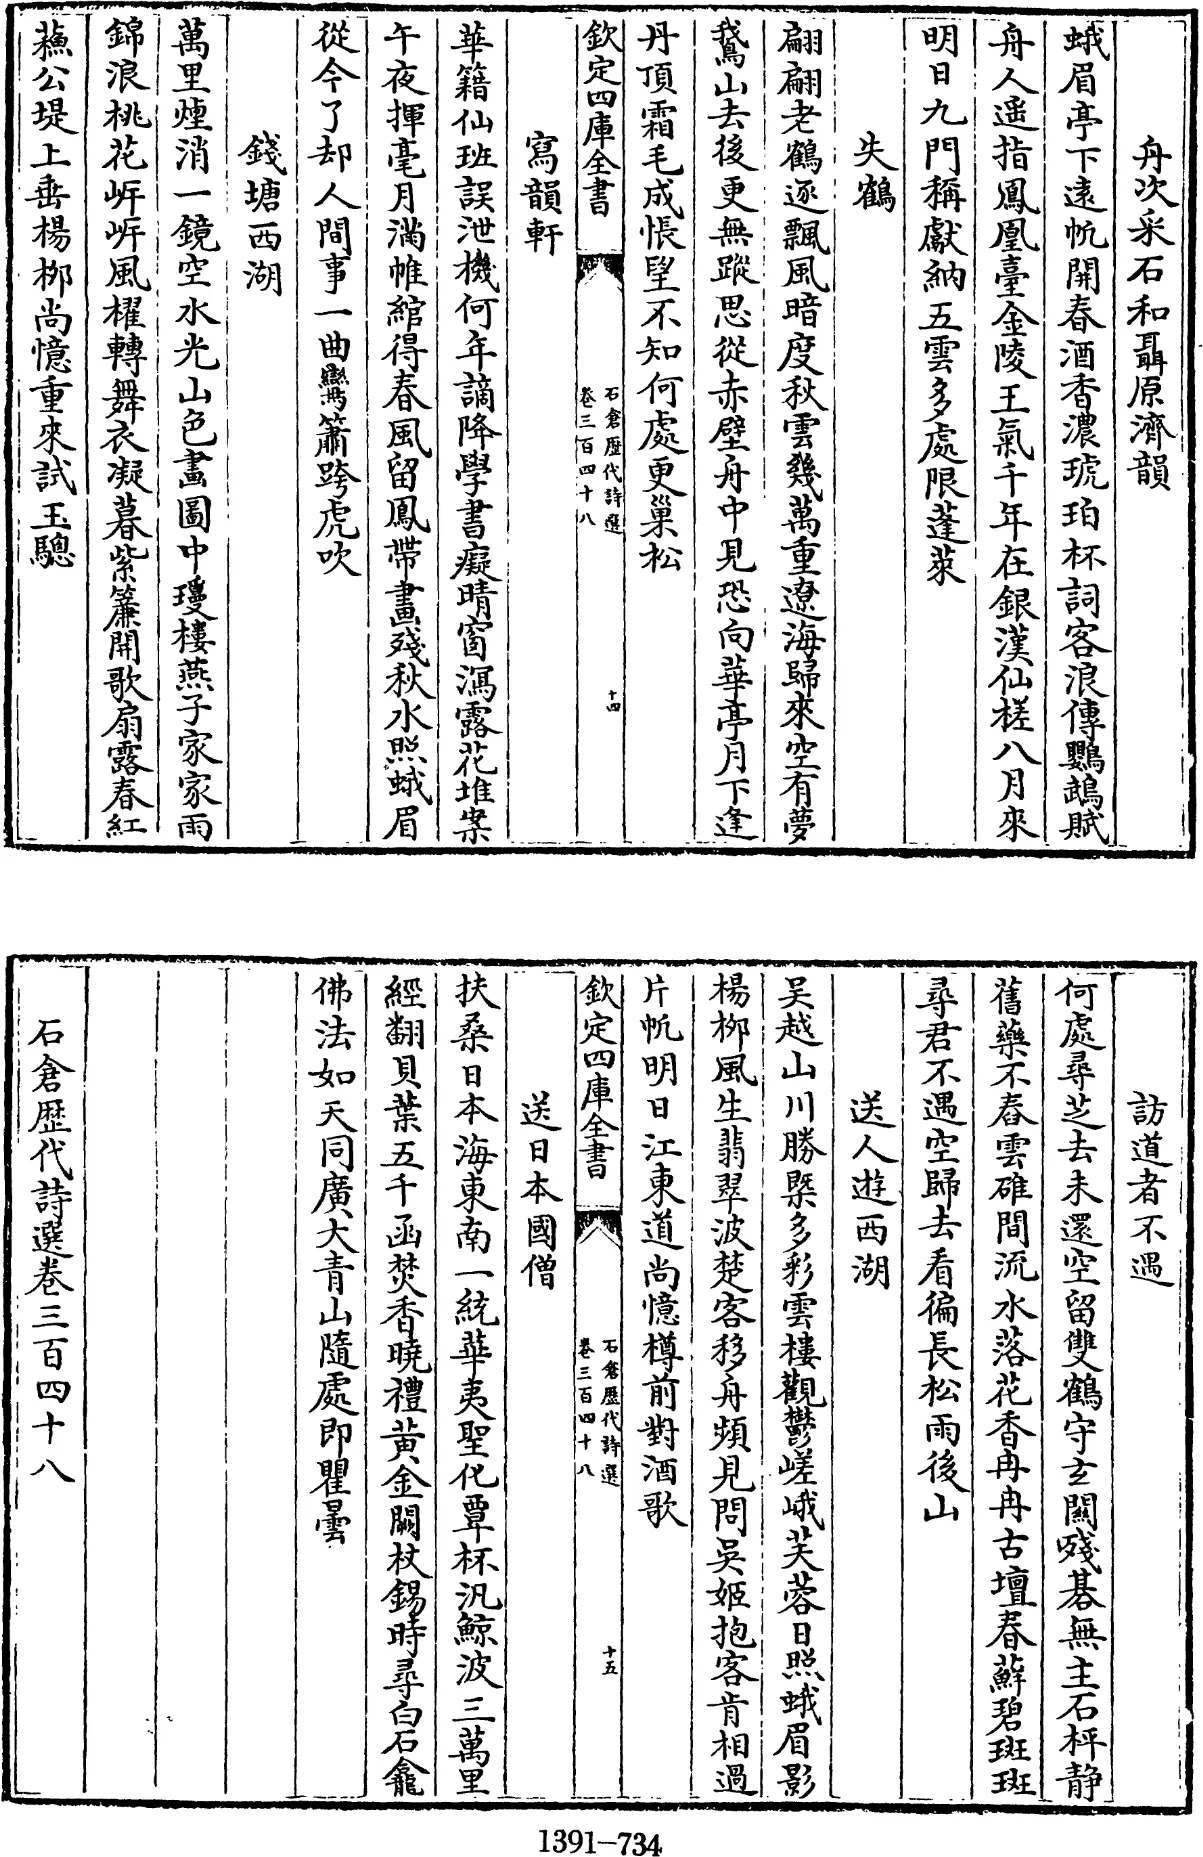 舟次采石和聶原濟韻
蛾眉亭下遠帆開春酒香濃琥珀杯詞客浪傳鸚鵡賦
舟人遥指鳳凰臺金陵王氣千年在銀漢仙槎八月來
明日九門稱獻納五雲多處眼蓬萊
失鶴
翩翩老鶴逐飄風暗度秋雲幾萬重遼海歸來空有夢
鵞山去後更無蹤思從赤壁舟中見恐向華亭月下逢
丹頂霜毛成悵望不知何處更巢松
欽定四庫全書
石倉歷代詩選
卷三百四十八
十四
寫韻軒
華籍仙班誤泄機何年謫降學書癡晴窗瀉露花堆案
午夜揮毫月滿帷綰得春風留鳳帶畫殘秋水照蛾眉
從今了却人間事一曲鸞簫跨虎吹
錢塘西湖
萬里煙消一鏡空水光山色畫圖中瓊樓燕子家家雨
錦浪桃花㟁㟁風櫂轉舞衣凝暮紫簾開歌扇露春紅
蘓公堤上垂楊栁尚憶重來試玉驄
訪道者不遇
何處尋芝去未還空留雙鶴守玄關殘碁無主石枰静
舊藥不舂雲碓間流水落花香冉冉古壇春蘚碧斑斑
尋君不遇空歸去看徧長松雨後山
送人遊西湖
吳越山川勝槩多彩雲樓觀鬱嵯峨芙蓉日照蛾眉影
楊栁風生翡翠波楚客移舟頻見問吳姬抱客肯相過
片帆明日江東道尚憶樽前對酒歌
欽定四庫全書
石倉歷代詩選
卷三百四十八
十五
送日本國僧
扶桑日本海東南一統華夷聖化覃杯汎鯨波三萬里
經翻貝葉五千函焚香曉禮黃金闕杖錫時尋白石龕
佛法如天同廣大青山隨處即瞿曇
石倉歷代詩選卷三百四十八
1391-734